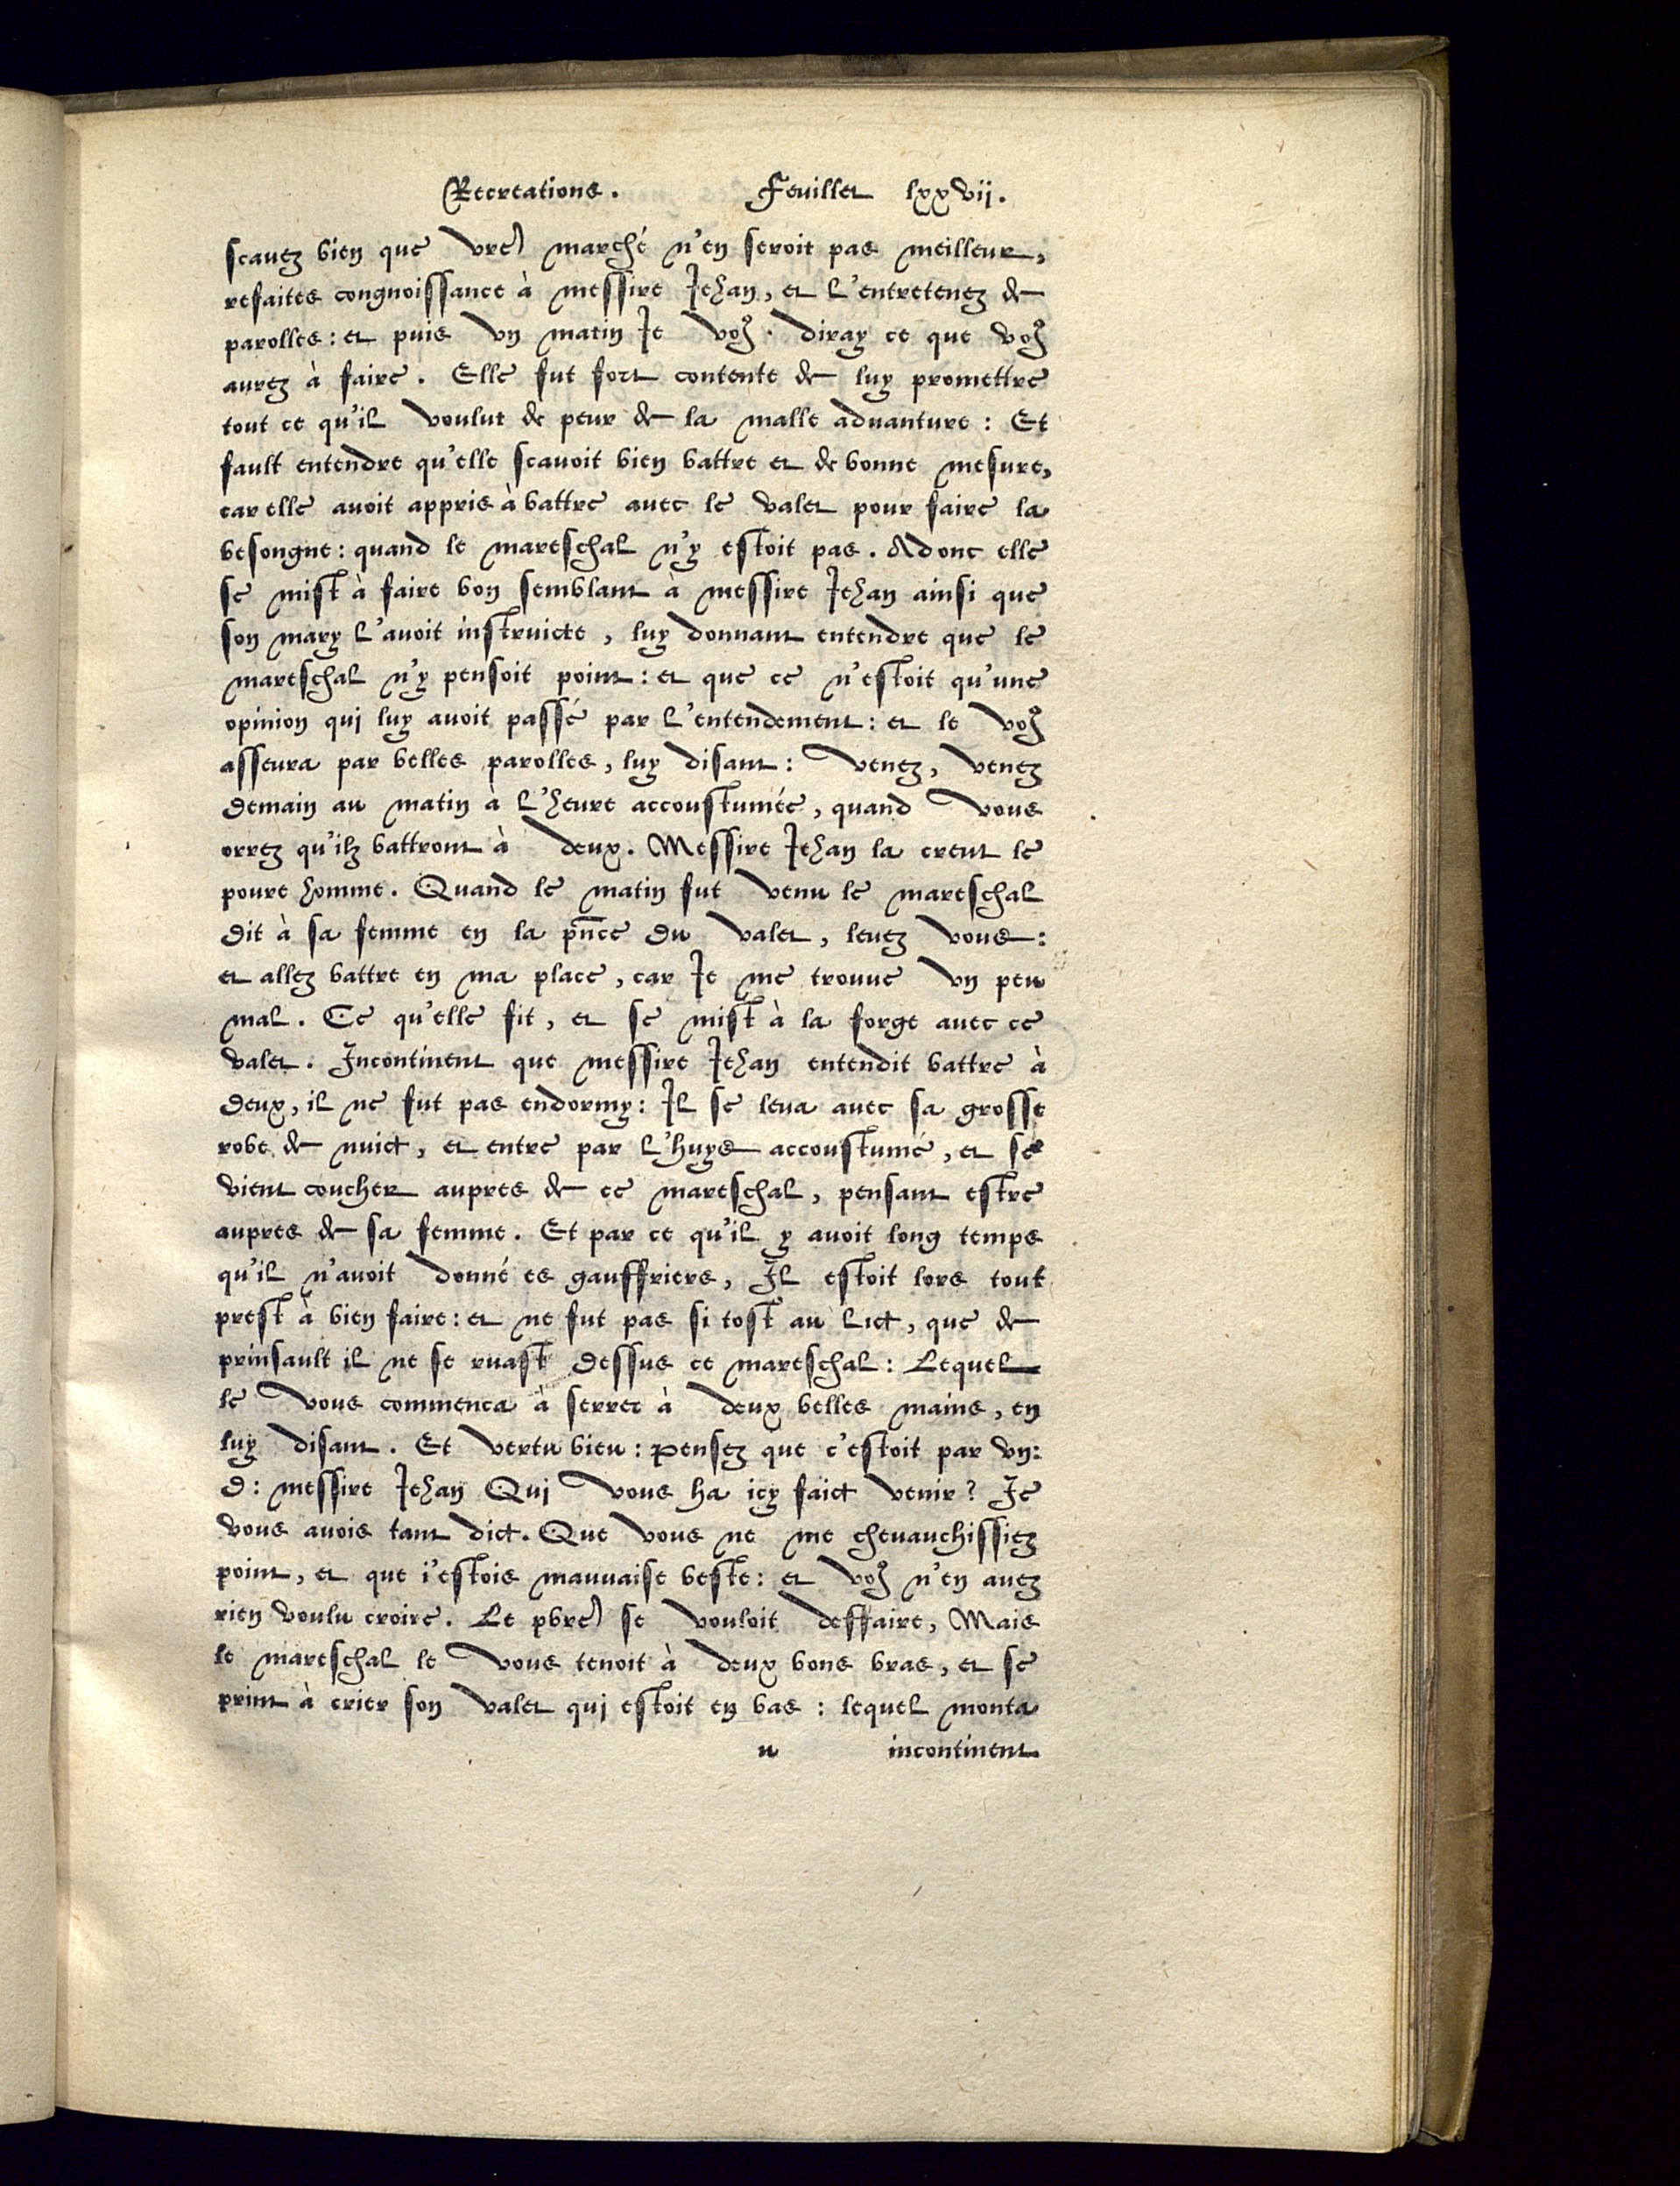 Recreations. Feuillet lxxvij.
scauez bien que vre marché n'en seroit pas meilleur,
refaites congnoissance à messire Jehan, et l'entretenez de
parolles: et puis vn matin Je voꝰ diray ce que voꝰ
aurez à faire. Elle fut fort contente de luy promettre
tout ce qu'il voulut de peur de la malle aduanture: Et
fault entendre qu'elle scauoit bien battre et de bonne mesure,
car elle auoit appris à battre auec le valet pour faire la
besongne: quand le mareschal n'y estoit pas. Adonc elle
se mist à faire bon semblant à messire Jehan ainsi que
son mary l'auoit instruicte, luy donnant entendre que le
mareschal n'y pensoit point: et que ce n'estoit qu'une
opinion qui luy auoit passé par l'entendement: et le voꝰ
asseura par belles parolles, luy disant: venez, venez
demain au matin à l'heure accoustumée, quand vous
orrez qu'ilz battront à deux. Messire Jehan la creut le
poure homme. Quand le matin fut venu le mareschal
dit à sa femme en la pn̄ce du valet, leuez vous:
et allez battre en ma place, car Je me trouue vn peu
mal. Ce qu'elle fit, et se mist à la forge auec ce
valet. Incontinent que messire Jehan entendit battre à
deux, il ne fut pas endormy: Il se leua auec sa grosse
robe de nuict, et entre par l'huys accoustumé, et se
vient coucher aupres de ce mareschal, pensant estre
aupres de sa femme. Et par ce qu'il y auoit long temps
qu'il n'auoit donné es gauffriers, Il estoit lors tout
prest à bien faire: et ne fut pas si tost au lict, que de
prinsault il ne se ruast dessus ce mareschal: Lequel
le vous commenca à serrer à deux belles mains, en
luy disant. Et vertu bieu: pensez que c'estoit par vn:
d: messire Jehan Qui vous ha icy faict venir? Je
vous auois tant dict. Que vous ne me cheuauchissiez
point, et que i'estois mauuaise beste: et voꝰ n'en auez
rien voulu croire. Le pbre se vouloit deffaire, Mais
le mareschal le vous tenoit à deux bons bras, et se
print à crier son valet qui estoit en bas: lequel monta
u incontinent